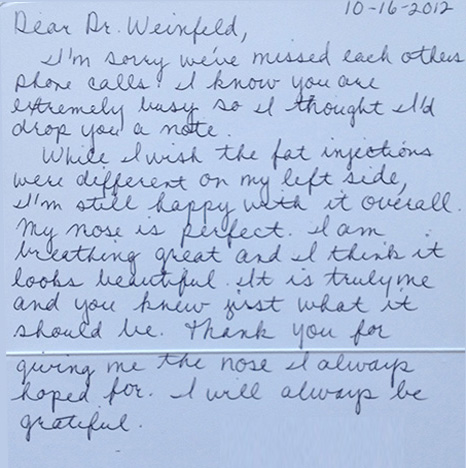 10-16-2012
Dear Dr. Weinfeld,
I'm sorry we've missed each others
phone calls. I know you are
extremely busy so I thought I'd
drop you a note.
While I wish the fat injections
were different on my left side,
I'm still happy with it overall.
My nose is perfect. I am
breathing great and I think it
looks beautiful. It is truly me
and you knew just what it
should be. Thank you for
giving me the nose I always
hoped for. I will always be
grateful.